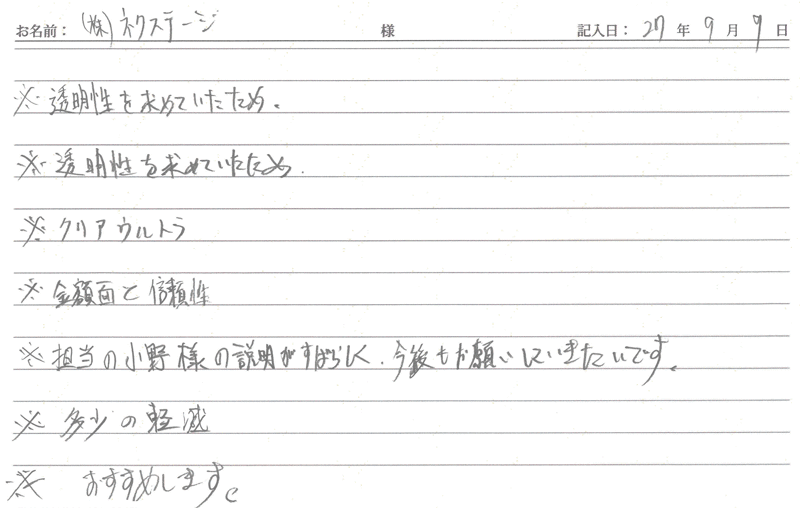 お名前：(株)ネクステージ 様 記入日：27年9月9日
※透明性を求めていたため。
※透明性を求めていたため.
※クリアウルトラ
※金額面と信頼性
※担当の小野様の説明がすばらしく、今後もお願いしていきたいです。
※多少の軽減
※おすすめします。